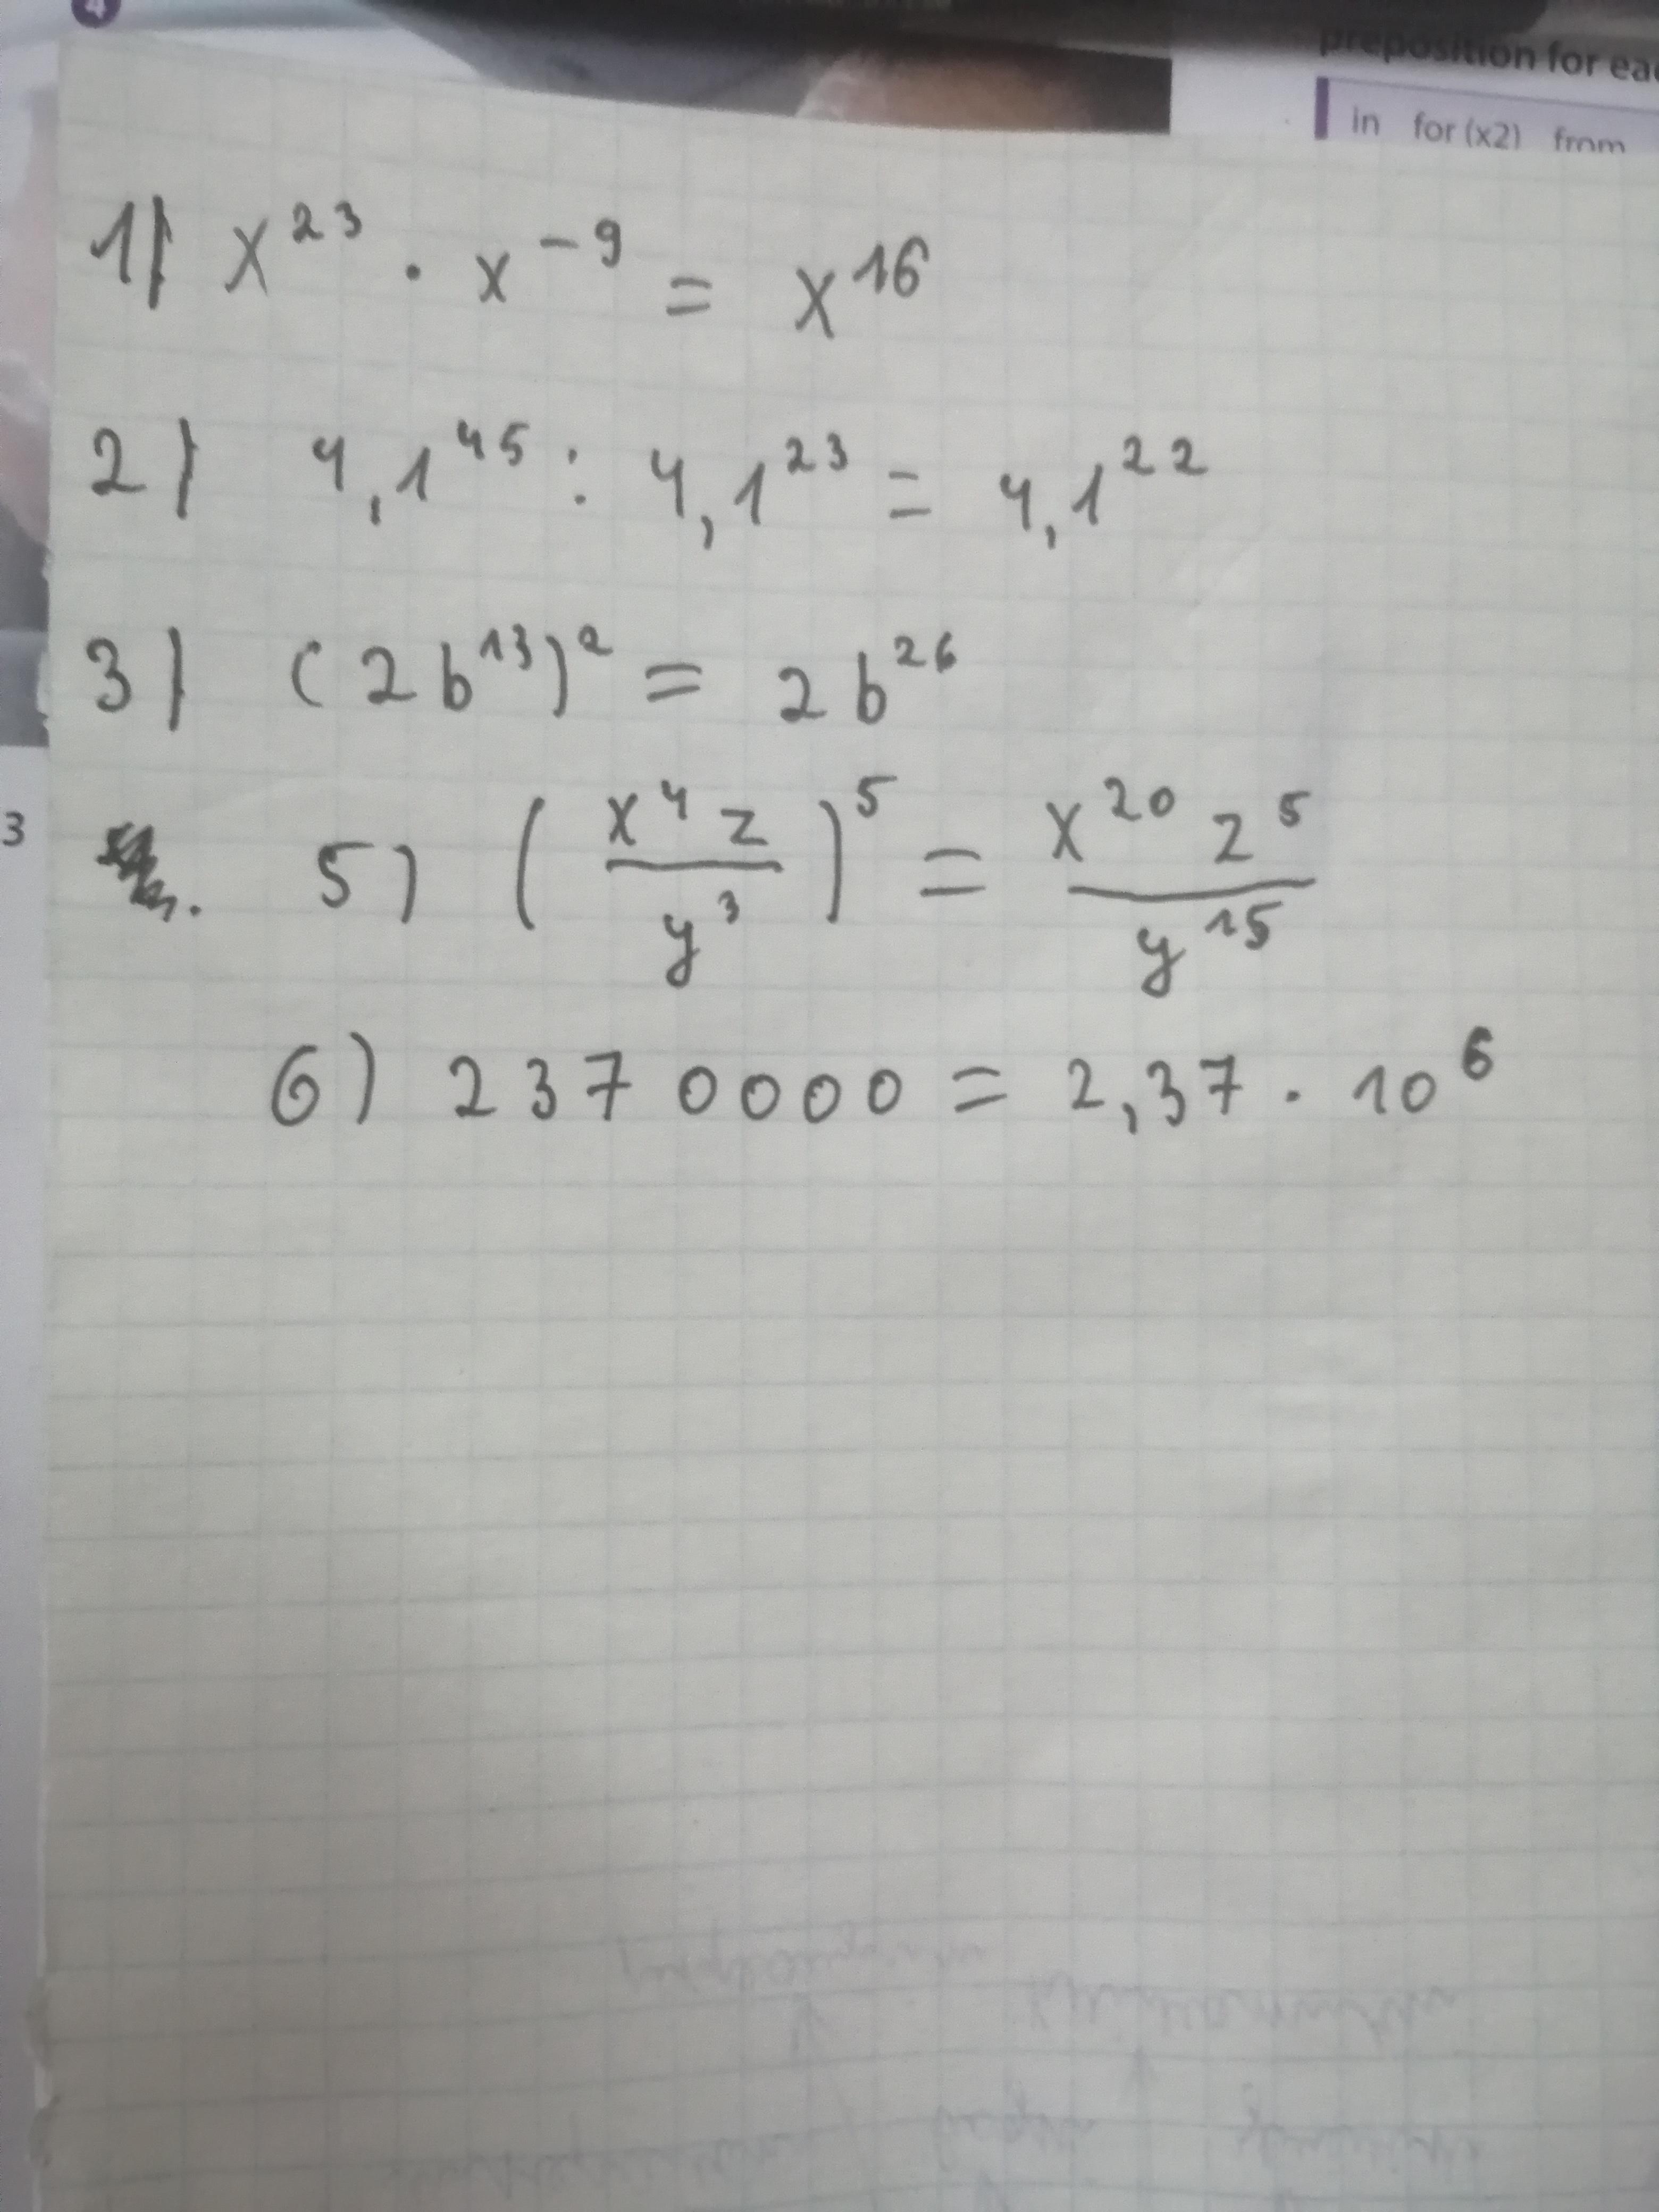 4
preposition for
in for (x2) from
1) x²³ · x⁻⁹ = x¹⁶
2) 4,1⁴⁵ : 4,1²³ = 4,1²²
3) (2b¹³)² = 2b²⁶
3
5) (x⁴z / y³)⁵ = x²⁰ z⁵ / y¹⁵
6) 2370000 = 2,37 · 10⁶